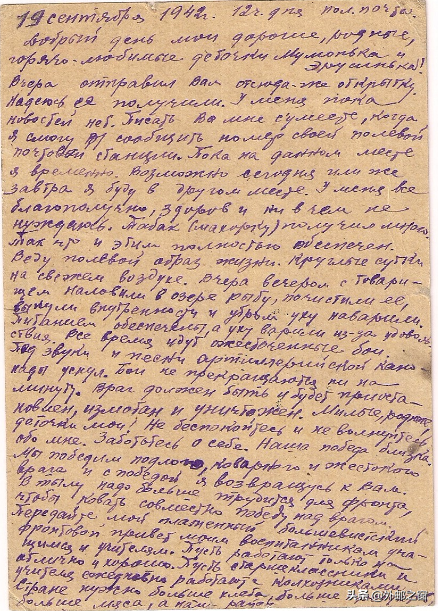 19 сентября 1942 г. 12 ч. дня пол. почты.
Добрый день мои дорогие, родные,
горячо-любимые деточки Мумонька и
Эрусинька!
Вчера отправил Вам отсюда-же открытку
Надеюсь её получили. У меня пока
новостей нет. Писать Вы мне сумеете, когда
я смогу сообщить номер своей полевой
почтовой станции. Пока на данном месте
я временно. Возможно сегодня или же
завтра я буду в другом месте. У меня все
благополучно, здоров и ни в чем не
нуждаюсь. Табак (махорку) получил много.
Так что и этим полностью обеспечен.
Веду полевой образ жизни. Круглые сутки
на свежем воздухе. Вчера вечером с товари-
щем наловили в озере рыбу, почистили ее,
вынули внутренности и уху наварили.
Питанием обеспечены, а уху варили из-за удоволь-
ствия. Все время идут ожесточенные бои.
Под звуки и песни артиллерийской кано-
нады уснул. Бои не прекращаются ни на
минуту. Враг должен быть и будет приоста-
новлен, измотан и уничтожен. Милые, родные
деточки мои! Не беспокойтесь и не волнуйтесь
обо мне. Заботьтесь о себе. Наша победа близка.
Мы победим подлого, коварного и жестокого
врага и с победой я возвращусь к Вам.
В тылу надо больше трудится для фронта,
чтобы ковать совместно победу над врагом.
Передайте мой пламенный большевистский
фронтовой привет моим воспитанникам уча-
щимся и учителям. Пусть работают только на
отлично и хорошо. Пусть старшеклассники и
учителя ежедневно работают
стране нужно больше хлеба, больше
больше мяса, а нам
头条 @外邮之窗